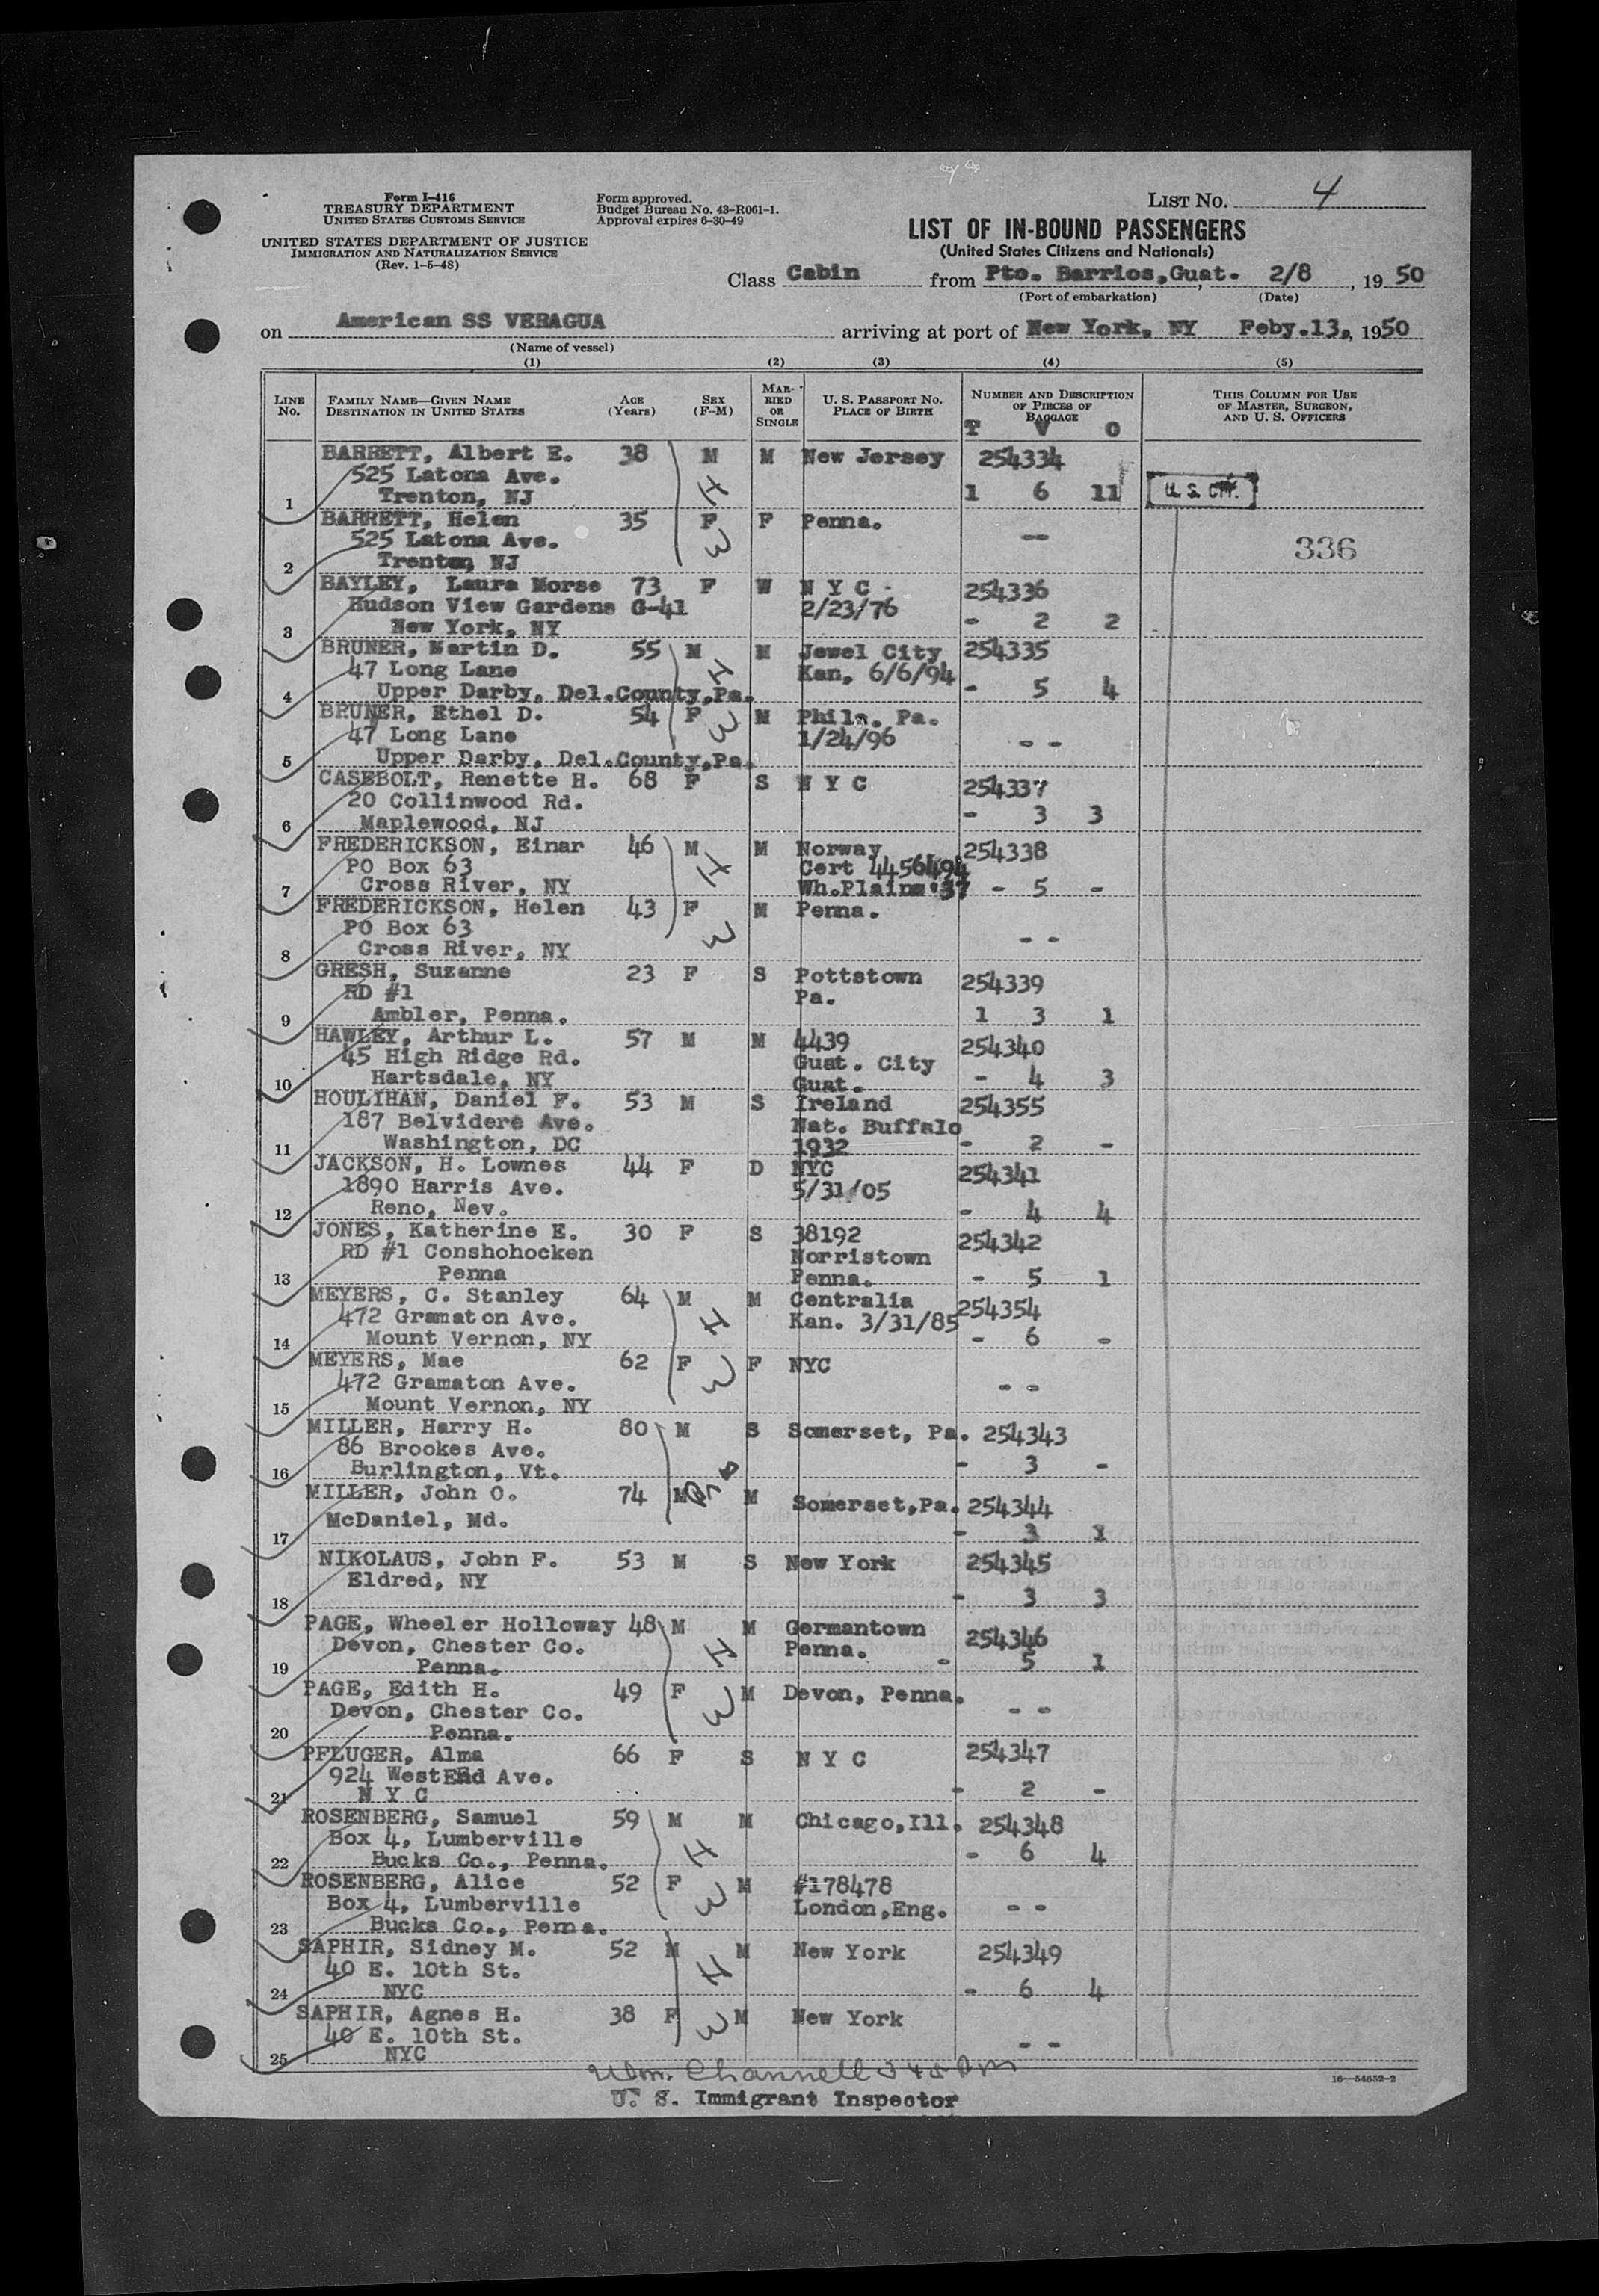 Form I-416
TREASURY DEPARTMENT
UNITED STATES CUSTOMS SERVICE
UNITED STATES DEPARTMENT OF JUSTICE
IMMIGRATION AND NATURALIZATION SERVICE
(Rev. 1-5-48)
Form approved.
Budget Bureau No. 43-R061-1.
Approval expires 6-30-49
LIST No. 4
LIST OF IN-BOUND PASSENGERS
(United States Citizens and Nationals)
Class Cabin from Pto. Barrios,Guat. 2/8, 1950
(Port of embarkation) (Date)
on American SS VERAGUA arriving at port of New York, NY Feby.13,, 1950
(Name of vessel)
(1) (2) (3) (4) (5)
LINE No. FAMILY NAME—GIVEN NAME DESTINATION IN UNITED STATES AGE (Years) SEX (F-M) MARRIED OR SINGLE U. S. PASSPORT NO. PLACE OF BIRTH NUMBER AND DESCRIPTION OF PIECES OF BAGGAGE THIS COLUMN FOR USE OF MASTER, SURGEON, AND U. S. OFFICERS
T V O
BARRETT, Albert E. 38 M M New Jersey 254334
525 Latona Ave.
1 Trenton, NJ H 1 6 11 U. S. CIT.
BARRETT, Helen 35 F F Penna.
525 Latona Ave. W -- 336
2 Trenton NJ
BAYLEY, Laura Morse 73 F W N Y C 254336
Hudson View Gardens G-41 2/23/76
3 New York, NY - 2 2
BRUNER, Martin D. 55 M M Jewel City 254335
47 Long Lane H Kan. 6/6/94
4 Upper Darby, Del.County,Pa. - 5 4
BRUNER, Ethel D. 54 F M Phila. Pa.
47 Long Lane W 1/24/96 - -
5 Upper Darby, Del.County,Pa.
CASEBOLT, Renette H. 68 F S N Y C 254337
20 Collinwood Rd.
6 Maplewood, NJ - 3 3
FREDERICKSON, Einar 46 M M Norway 254338
PO Box 63 H Cert 4456494
7 Cross River, NY Wh.Plains '37 - 5 -
FREDERICKSON, Helen 43 F M Penna.
PO Box 63 W
8 Cross River, NY - -
GRESH, Suzanne 23 F S Pottstown 254339
RD #1 Pa.
9 Ambler, Penna. 1 3 1
HAWLEY, Arthur L. 57 M M 4439 254340
45 High Ridge Rd. Guat. City
10 Hartsdale, NY Guat. - 4 3
HOULIHAN, Daniel F. 53 M S Ireland 254355
187 Belvidere Ave. Nat. Buffalo
11 Washington, DC 1932 - 2 -
JACKSON, H. Lownes 44 F D NYC 254341
1890 Harris Ave. 5/31/05
12 Reno, Nev. - 4 4
JONES, Katherine E. 30 F S 38192 254342
RD #1 Conshohocken Norristown
13 Penna Penna. - 5 1
MEYERS, C. Stanley 64 M M Centralia 254354
472 Gramaton Ave. H Kan. 3/31/85
14 Mount Vernon, NY - 6 -
MEYERS, Mae 62 F F NYC
472 Gramaton Ave. W - -
15 Mount Vernon, NY
MILLER, Harry H. 80 M S Somerset, Pa. 254343
86 Brookes Ave.
16 Burlington, Vt. - 3 -
MILLER, John O. 74 M M Somerset,Pa. 254344
McDaniel, Md.
17 - 3 1
NIKOLAUS, John F. 53 M S New York 254345
Eldred, NY
18 - 3 3
PAGE, Wheeler Holloway 48 M M Germantown 254346
Devon, Chester Co. H Penna.
19 Penna. - 5 1
PAGE, Edith H. 49 F M Devon, Penna.
Devon, Chester Co. W - -
20 Penna.
PFLUGER, Alma 66 F S N Y C 254347
924 WestEnd Ave.
21 N Y C - 2 -
ROSENBERG, Samuel 59 M M Chicago,Ill. 254348
Box 4, Lumberville H
22 Bucks Co., Penna. - 6 4
ROSENBERG, Alice 52 F M #178478
Box 4, Lumberville W London,Eng. - -
23 Bucks Co., Penna.
SAPHIR, Sidney M. 52 M M New York 254349
40 E. 10th St. H
24 NYC - 6 4
SAPHIR, Agnes H. 38 F M New York
40 E. 10th St. W
25 NYC - -
Wm. Channell
U. S. Immigrant Inspector
16—54652-2